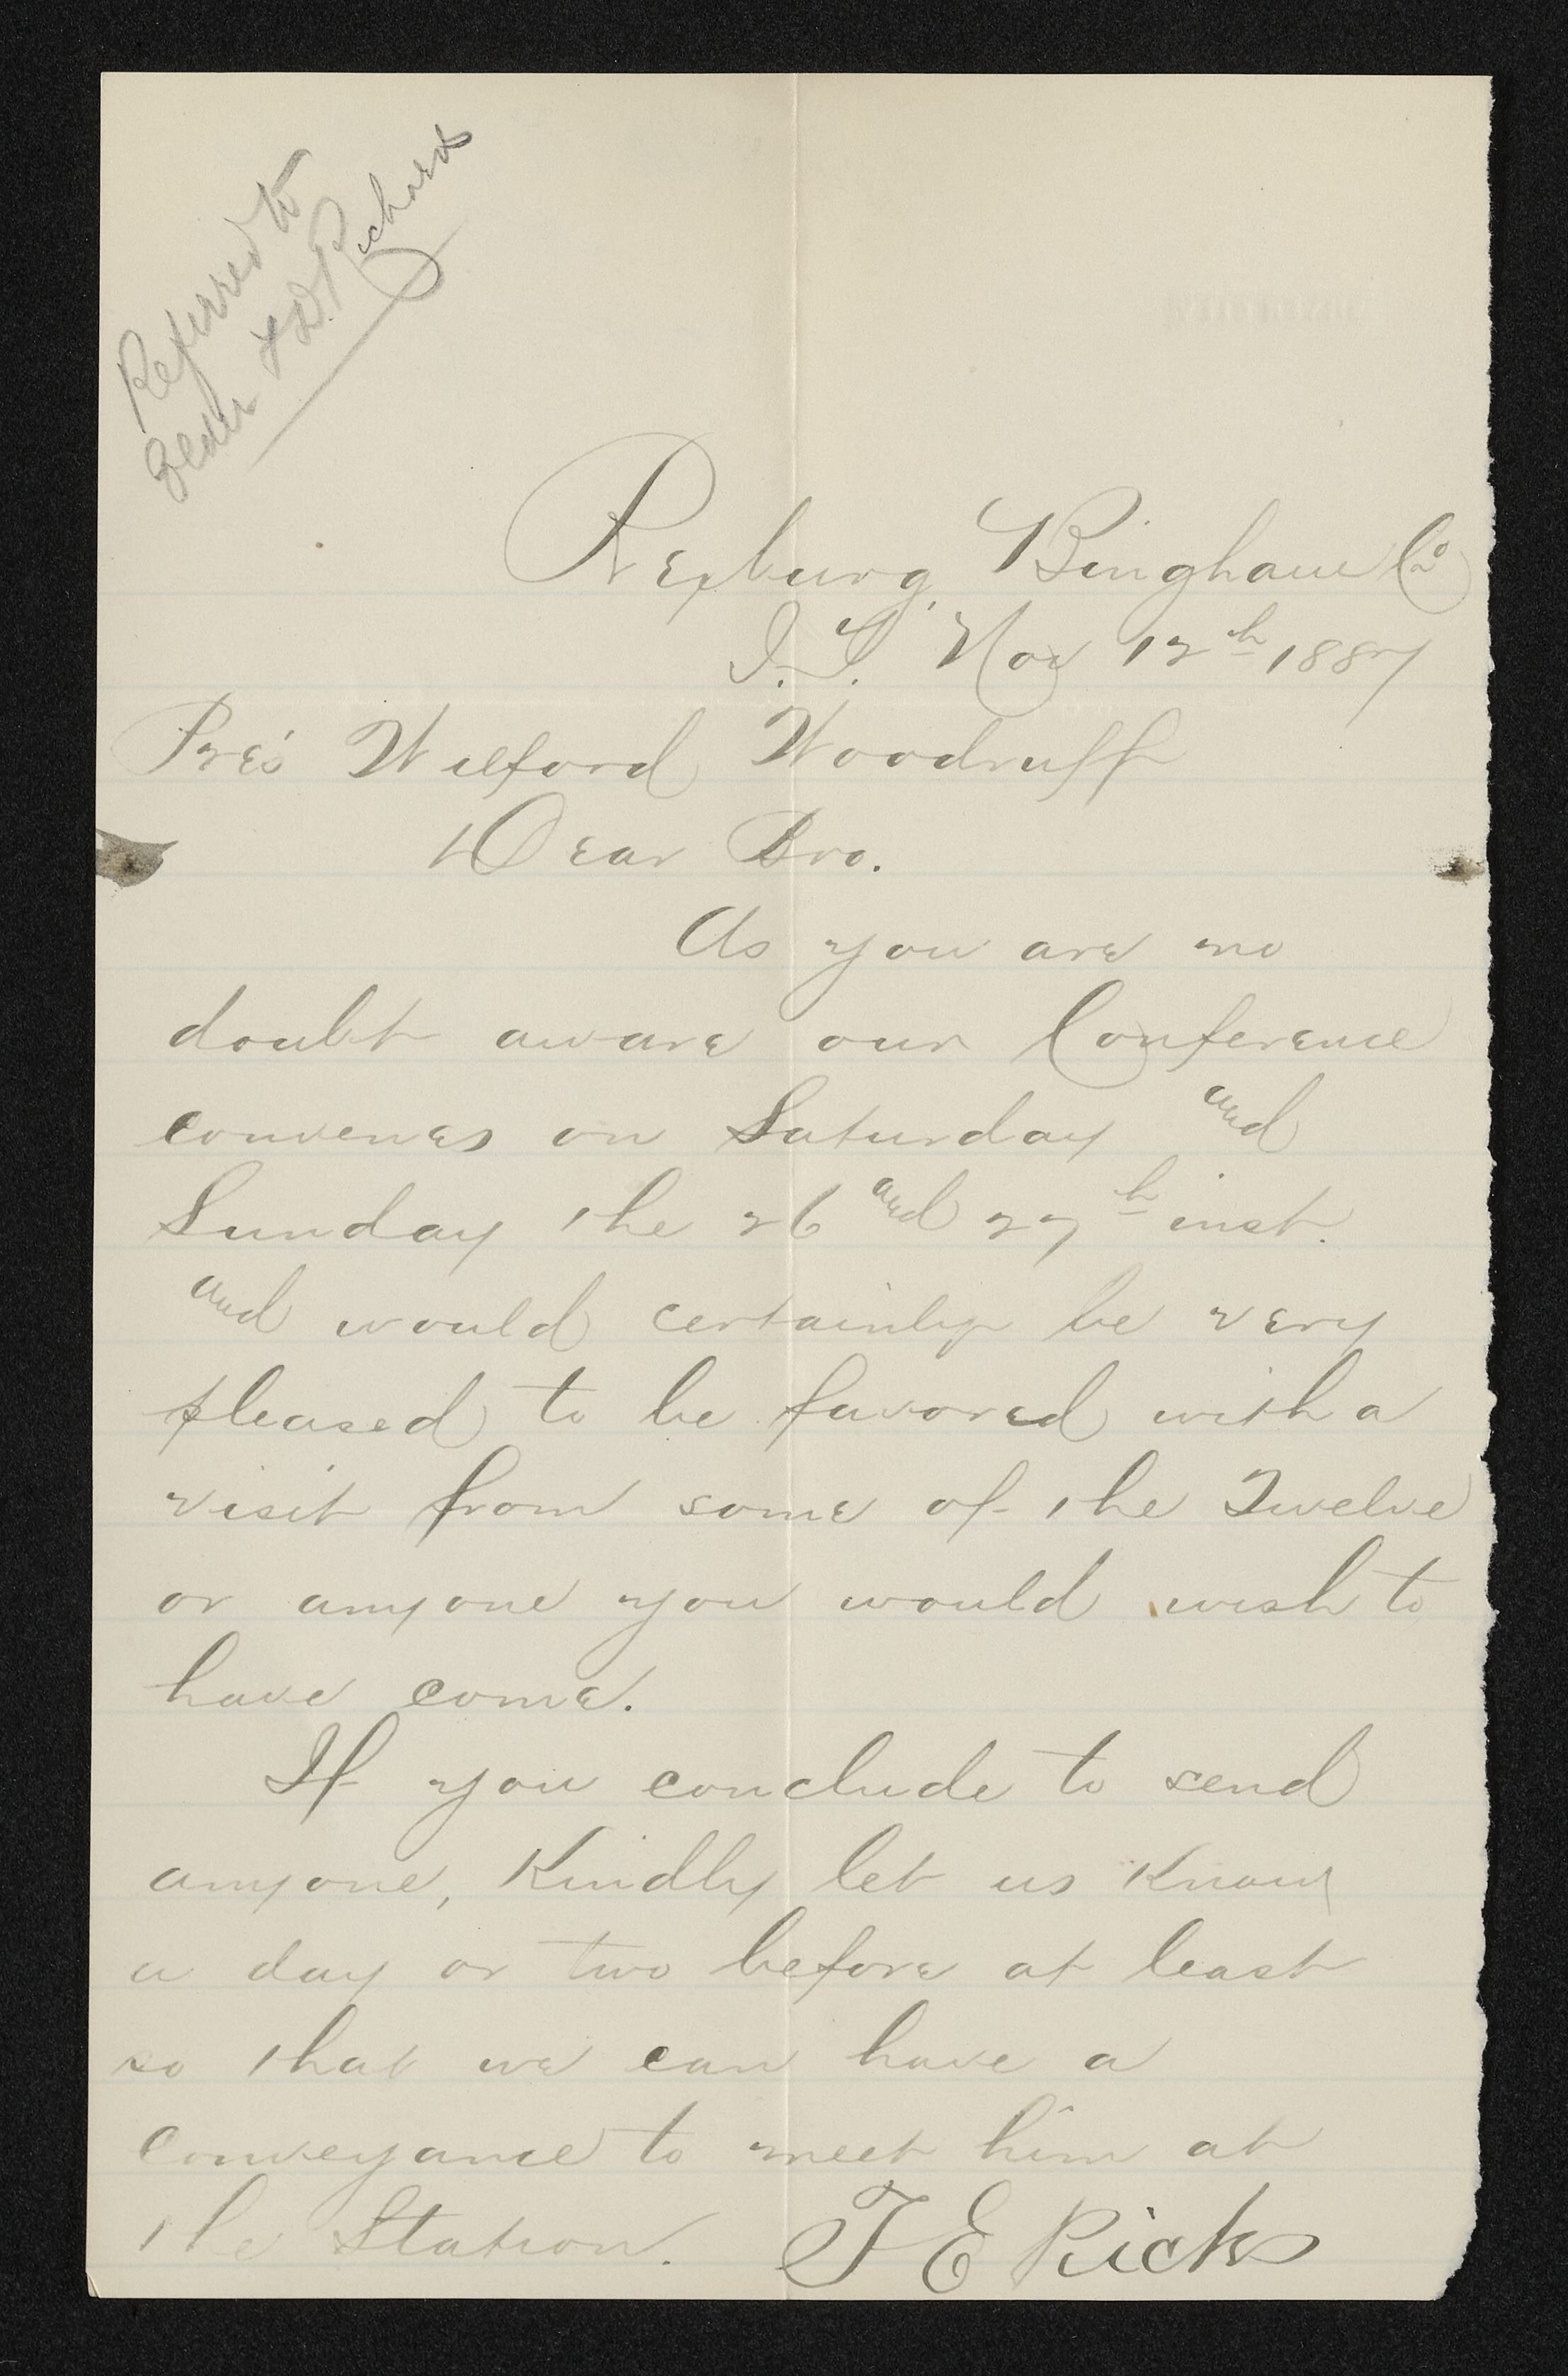 Referred to
Elder F D. Richards
Rexburg, Bingham Co
I. T. Nov 12th 1887
Pres Wilford Woodruff
Dear Bro.
As you are no
doubt aware our Conference
convenes on Saturday and
Sunday the 26 and 27th inst.
and would certainly be very
pleased to be favored with a
visit from some of the Twelve
or anyone you would wish to
have come.
If you conclude to send
anyone, Kindly let us Know
a day or two before at least
so that we can have a
conveyance to meet him at
the Station. T E Ricks